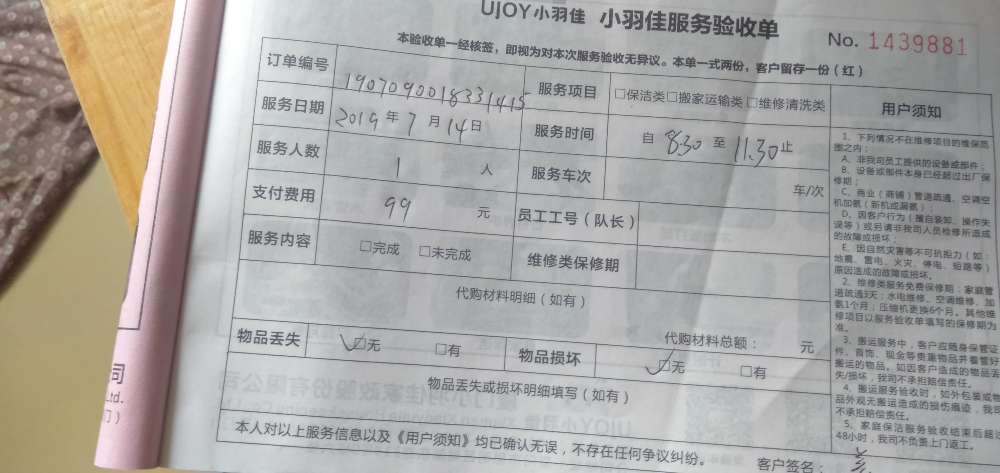 UJOY小羽佳 小羽佳服务验收单
No. 1439881
本验收单一经核签,即视为对本次服务验收无异议。本单一式两份,客户留存一份(红)
订单编号 1907090018331415 服务项目 □保洁类□搬家运输类□维修清洗类
服务日期 2019年7月14日 服务时间 自 8.30 至 11.30 止
服务人数 1 人 服务车次 车/次
支付费用 99 元 员工工号(队长)
服务内容 □完成 □未完成 维修类保修期
代购材料明细(如有)
代购材料总额: 元
物品丢失 □无 □有 物品损坏 □无 □有
物品丢失或损坏明细填写(如有)
本人对以上服务信息以及《用户须知》均已确认无误,不存在任何争议纠纷。
客户签名:
用户须知
1、下列情况不在维修项目的维保范
围之内:
A、非我司员工提供的设备或部件;
B、设备或部件本身已经超过出厂保
修期;
C、商业(商铺)管道疏通、空调空
机加氨(新机或漏氨);
D、因客户行为(擅自拿卸、操作失
误等)或另请非我司人员检修所造成
的故障或损坏;
E、因自然灾害等不可抗拒力(如:
地震、雷电、火灾、停电、短路等)
原因造成的故障或损坏。
2、维修类服务免费保修期:家庭管
道疏通3天;水电维修、空调维修、加
氨1个月;压缩机更换6个月。其他维
修项目以服务验收单填写的保修期为
准。
3、搬运服务中,客户应随身保管证
件、首饰、现金等贵重物品并看管好
搬运的物品,如因客户造成的物品丢
失/损坏,我司不承担赔偿责任。
4、搬运服务验收时,如外包装或物
品外观无搬运造成的损伤痕迹,我司
不承担赔偿责任。
5、家庭保洁服务验收结束后超过
48小时,我司不负责上门返工。
司
Ltd.
门)